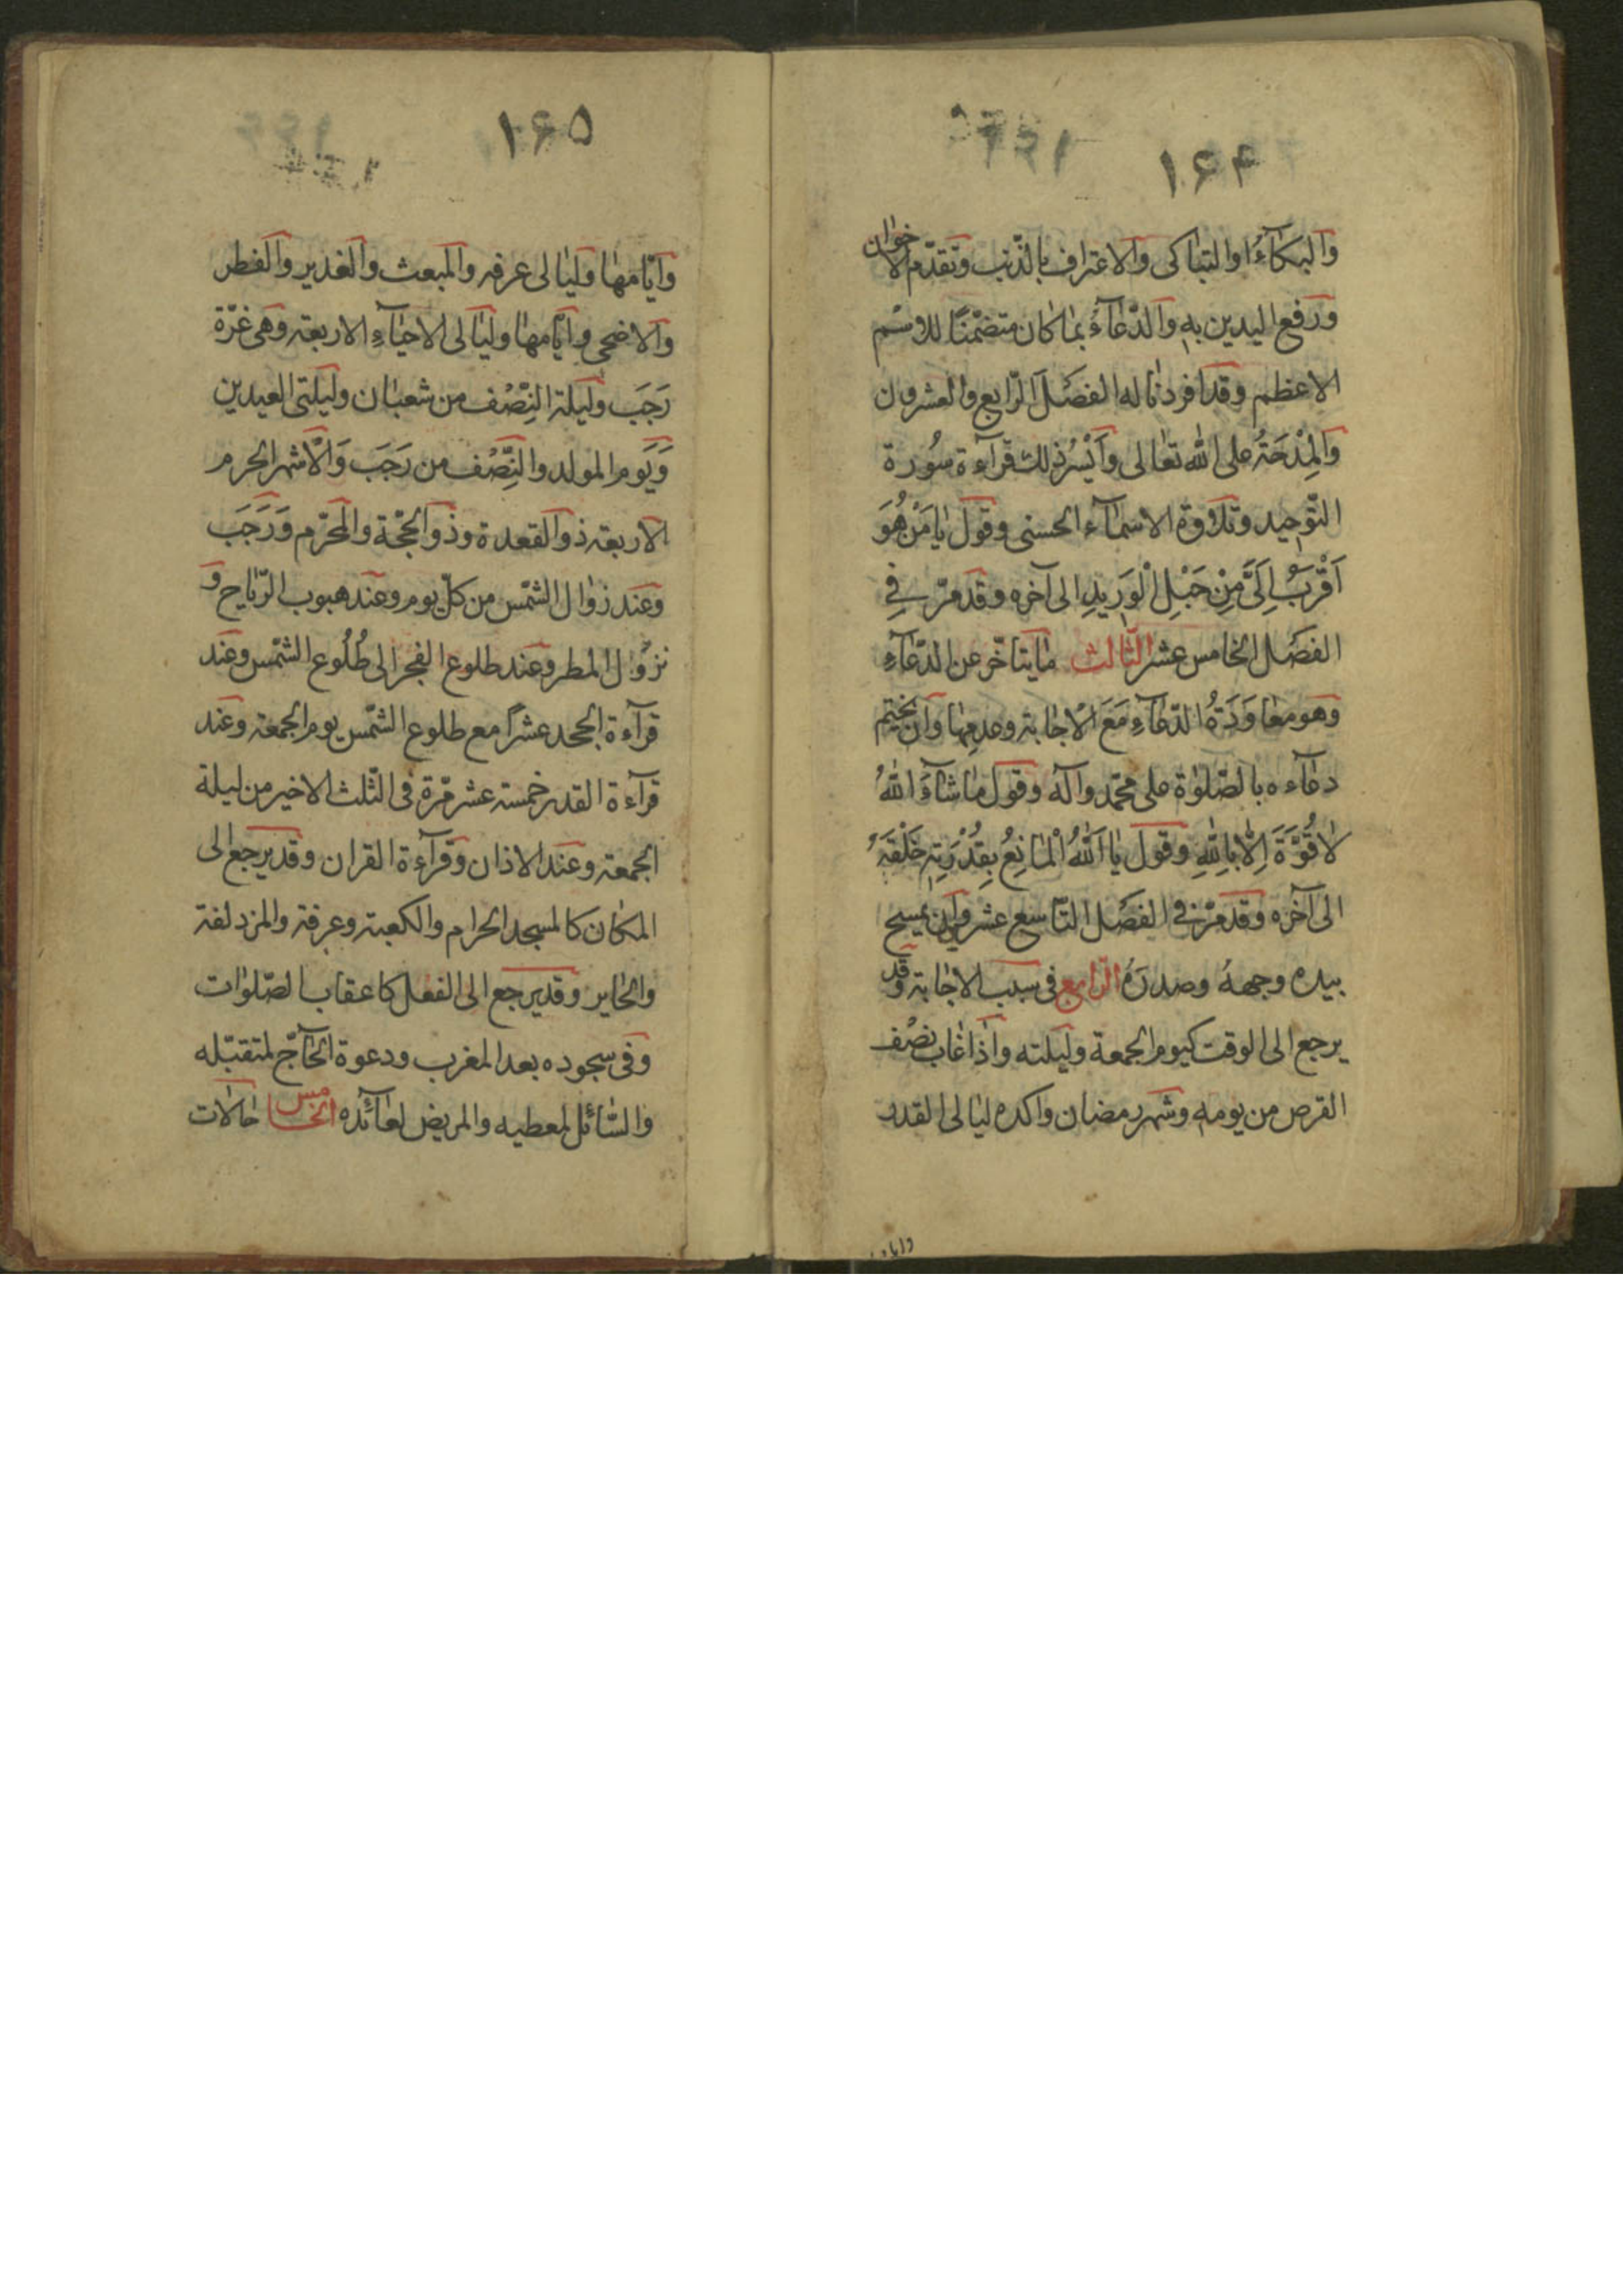 ۱۶۴
والبكآءُ او التباكى والاعتراف بالذّنب وتقدّم الاخوان
ورفع اليدين به والدّعآءُ بما كان متضمّنًا للاسْم
الاعظم وقد افردنا له الفصَل الرّابع والعشرون
والمِدْحَةُ على الله تعالى وأَيْسَرُ ذلك قرآءة سُورة
التّوحيد وتلاوة الاسمآء الحسنى وقول يا مَنْ هُوَ
اَقْرَبُ اِلَىَّ مِنْ حَبْلِ الْوَرِيدِ الى آخره وقد مرّ فِى
الفصَل الخامس عشر الثّالث ما يتاخّر عن الدّعآءِ
وهو معاوَدَةُ الدّعآءِ مَعَ الاجابة وعدمها وان يختم
دعآءه بالصّلوٰة على محمّد وآله وقول ما شآءَ اللهُ
لا قُوَّةَ اِلّا بِاللهِ وقول يا اَللهُ الْمانِعُ بِقُدْرَتِهِ خَلْقَهُ
الى آخره وقد مرّ فى الفصَل التّاسع عشر وان يمسح
بيده وجههُ وصدرَهُ الرّابع فى سبب الاجابة وقد
يرجع الى الوقت كيوم الجمعة وليلته واذا غاب نصْف
القرص من يومه وشهر رمضان واكده ليالى القدر
۱۶۵
وايّامها وليالى عرفه والمبعث والغدير والفطر
والاضحى وايّامها وليالى الاحيآءِ الاربعة وهى غرّة
رَجَب وليلة النِّصْف من شعبان وليلتى العيدين
وَيَوم المولد والنِّصْف من رَجَب وَالاشهر الحرم
الاربعة ذو القعدة وذو الحجّة والمحرّم وَرَجَب
وعند زوال الشّمس من كلّ يوم وعند هبوب الرّياح و
نزول المطر وعند طلوع الفجر الى طُلُوع الشّمس وعند
قرآءة الجحد عشرًا مع طلوع الشّمس يوم الجمعة وعند
قرآءة القدر خمسة عشر مرّة فى الثّلث الاخير من ليلة
الجمعة وعند الاذان وقرآءة القران وقد يرجع الى
المكان كالمسجد الحرام والكعبة وعرفة والمزدلفة
والحاير وقد يرجع الى الفعل كاعقاب الصّلوات
وفى سجوده بعد المغرب ودعوة الحآجّ لمتقبّله
والسّائل لمعطيه والمريض لعآئده الخامس حالات